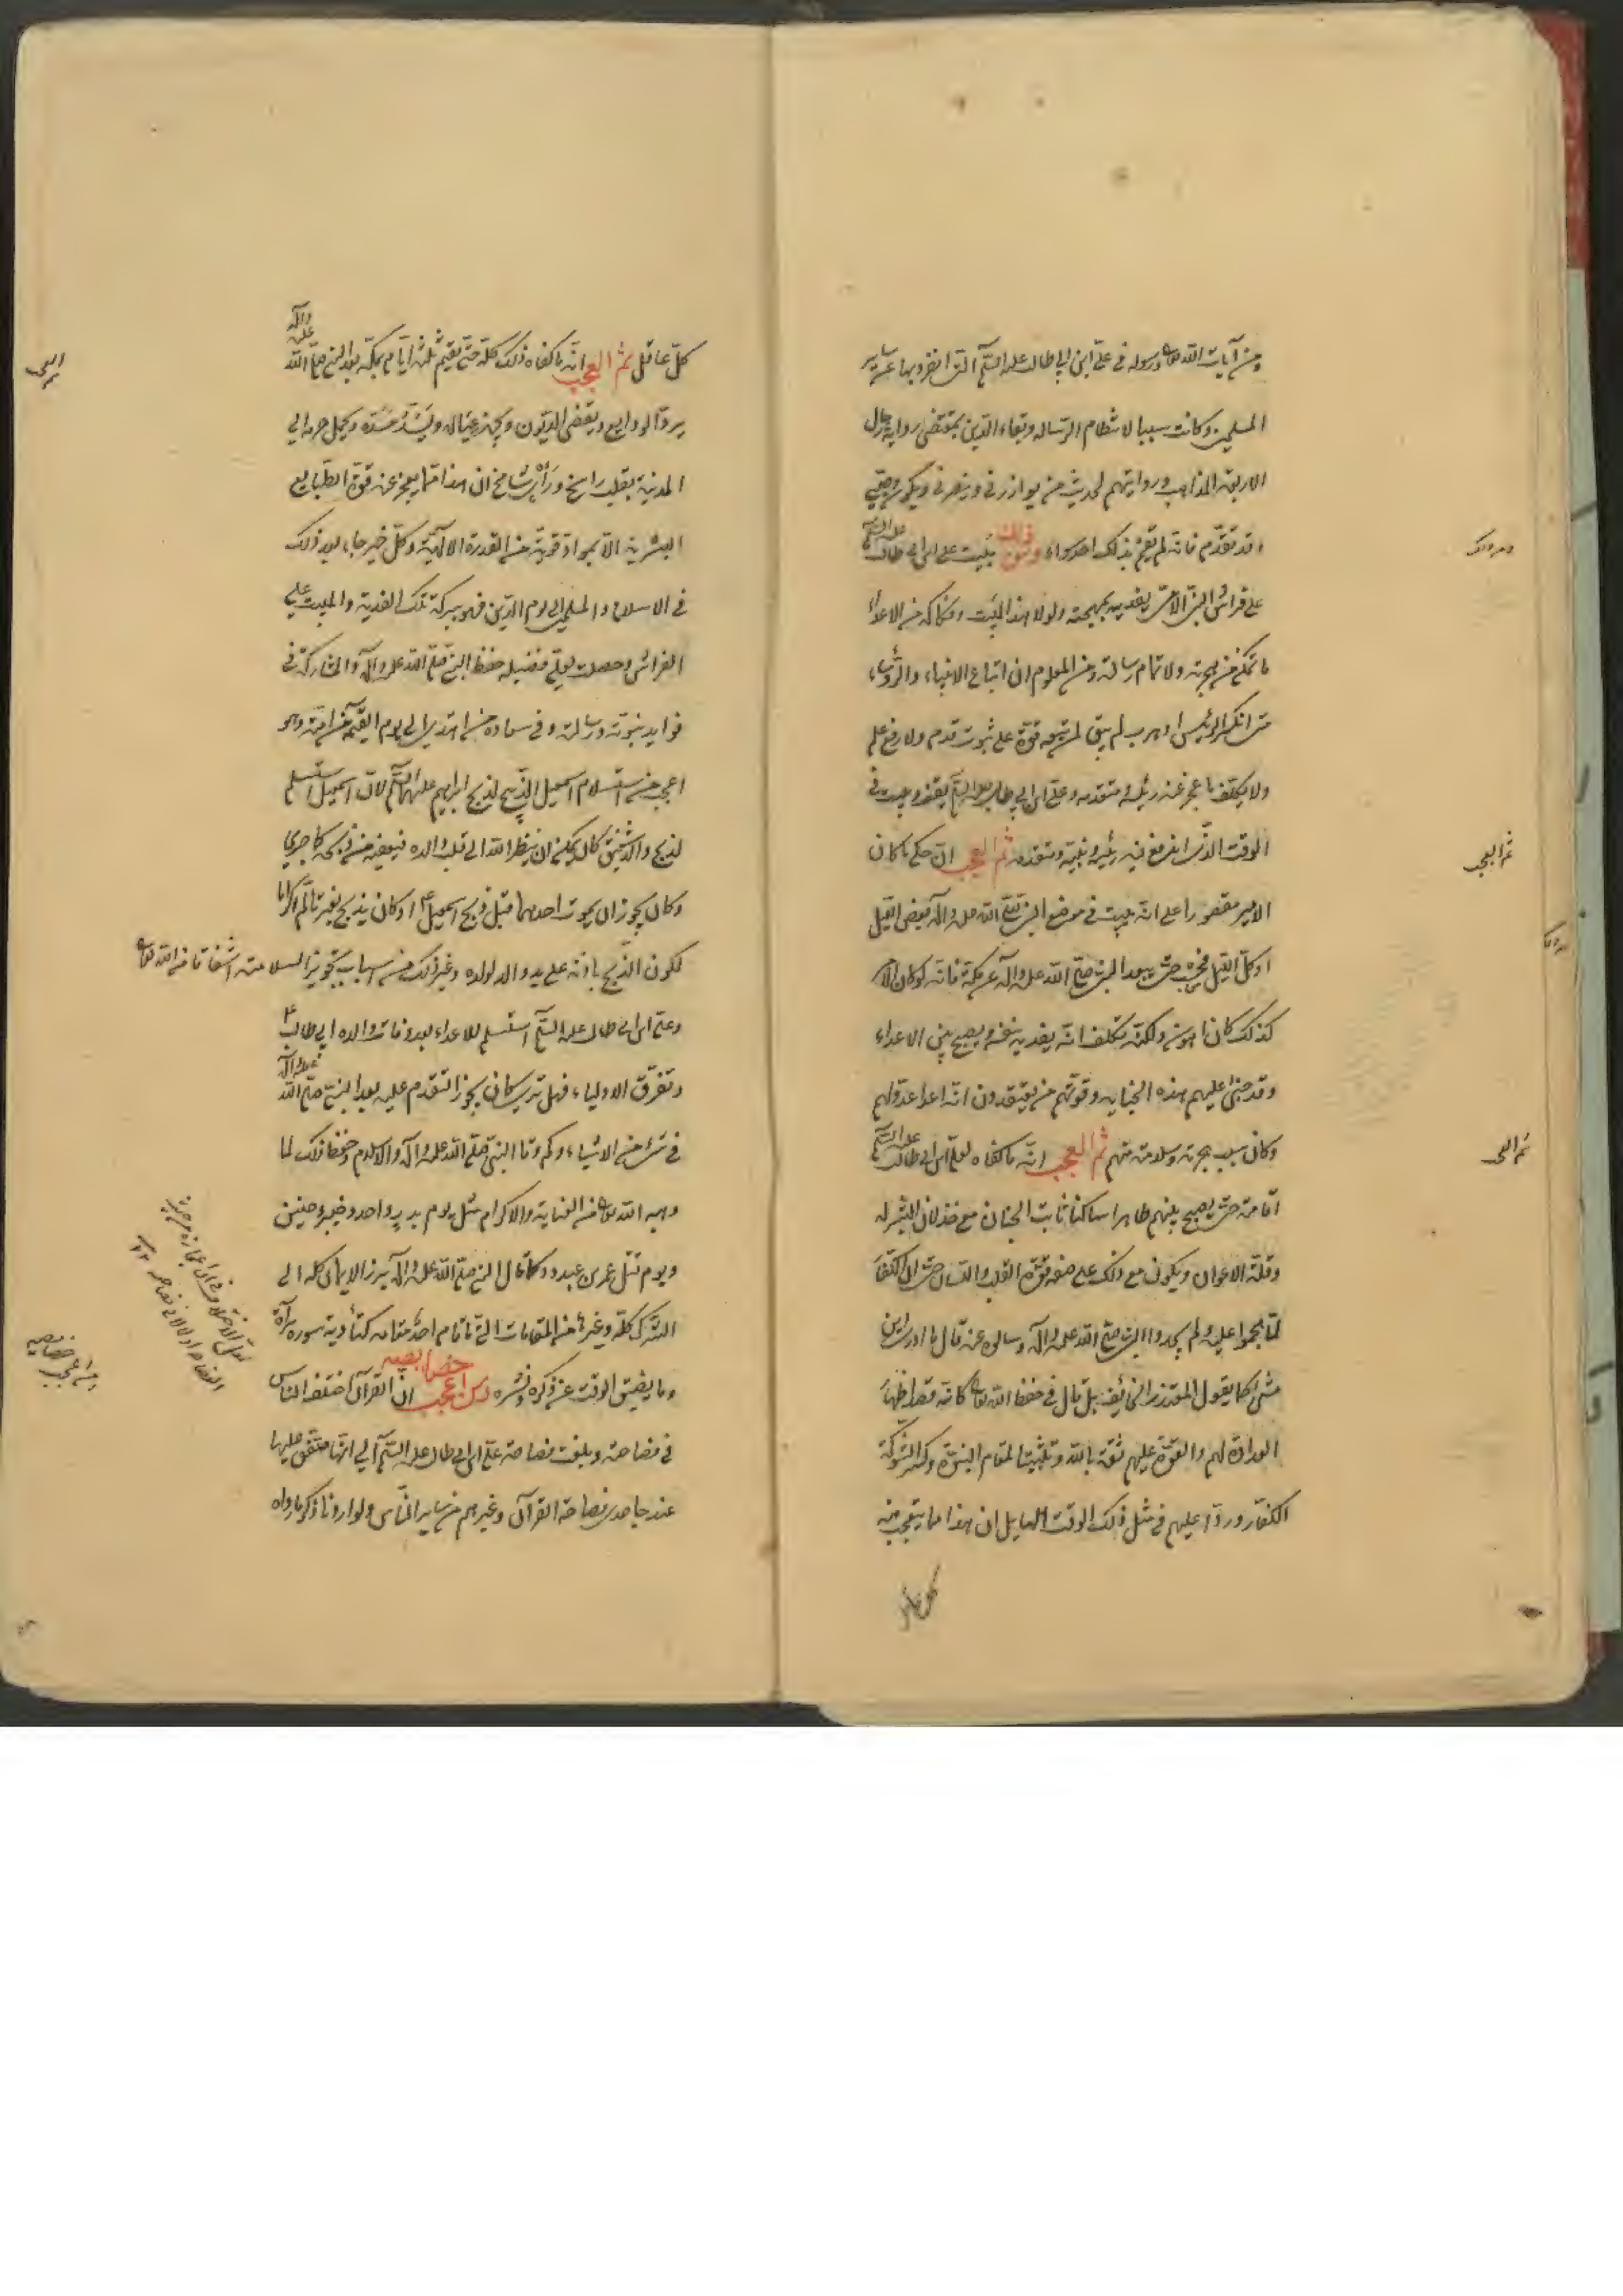 ومن آيات الله تعا ورسوله في علي ابن ابي طالب عليه السلم التي انفرد بها عن ساير
المسلمين وكانت سببا لانتظام الرسالة وبقاء الدين بمقتضى رواية رجال
الاربعة المذاهب وروايتهم لحديث من يوازرني وينصرني ويكون وصيي
وقد تقدم فانه لم يقم بذلك احد سواه ومن ذلك مبيت علي ابن ابي طالب عليه السلم
على فراش النبي يفديه بمهجته ولولا هذا المبيت وفكاكه من الاعداء
ما تمكن من هجرته ولا تمام رسالته ومن المعلوم ان اتباع الانبياء والرؤساء
متى انكسر الرئيس او هرب لم يبق لمتبعه قوة على ثبوت قدم ولا رفع علم
ولا يكلف ما عجز عنه رئيسه ومتقدمه وعلي ابن ابي طالب عليه السلم يقف ويبيت في
الوقت الذي اندفع فيه رئيسه ونبيه ومتقدمه ثم العجب ان حكم ما كان
الامر مقصورا على انه يبيت في موضع النبي صلى الله عليه وآله بعض الليل
او كل الليل فحسب حتى يبعد النبي صلى الله عليه وآله عن مكة فانه لو كان الامر
كذلك كان اهون ولكنه تكلف انه يفديه بنفسه ويصبح بين الاعداء
وقد جنى عليهم هذه الجناية وفوتهم من يعتقدون انه اعدا عدو لهم
وكان سبب هجرته وسلامته منهم ثم العجب انه ما كفاه لعلي ابن ابي طالب عليه السلم
اقامته حتى يصبح بينهم ظاهرا ساكنا ثابت الجنان مع خذلان البشر له
وقلة الاعوان ويكون مع ذلك على صفة قوة القلب واللسان حتى ان الكفار
لما هجموا عليه ولم يجدوا النبي صلى الله عليه وآله وسالوه عنه قال ما ادري اين
مضى كما يقول المعتذر الخائف بل قال في حفظ الله تعا كانه قصد اظهار
العداوة لهم والقوة عليهم ثقة بالله وتثبيتا لمقام النبوة وكسر الشوكة
الكفار وردا عليهم في مثل ذلك الوقت الهايل ان هذا مما يتعجب منه
كل عاقل
ثم العجب
ثم العجب
كل عاقل ثم العجب انه ما كفاه ذلك كله حتى يقيم ثلثة ايام بمكة بعد النبي صلى الله عليه وآله
يرد الودايع ويقضي الديون ويجهز عياله ويسد مسده ويحمل حرمه الى
المدينة بقلب راسخ ورأي شامخ ان هذا مما يعجز عنه قوة الطبايع
البشرية الا بمواد قوية من القدرة الالهية وكل خير جاء بعد ذلك
في الاسلام والمسلمين الى يوم الدين فهو ببركة تلك الفدية والمبيت على
الفراش وحصلت لعلي فضيلة حفظ النبي صلى الله عليه وآله والمشاركة في
فوايد نبوته ورسالته وفي سعادة من اهتدى الى يوم القيمة من امته وهو
اعجب من استسلام اسمعيل الذبيح لذبح ابراهيم عليهما السلم لان اسمعيل استسلم
لذبح والد شفيق كان يمكن ان ينظر الله الى قلب والده فيعفيه من ذبحه كما جرى
وكان يجوز ان يموت احدهما قبل ذبح اسمعيل او كان يذبح بغير تالم اكراما
لكون الذبح باذنه على يد والد لولده وغير ذلك من اسباب تجويز السلامة اشفاقا من الله تعا
وعلي ابن ابي طالب عليه السلم استسلم للاعداء بعد وفات والده ابي طالب
وتفرق الاولياء فهل ترى كان يجوز التقدم عليه بعد النبي صلى الله عليه وآله
في شيء من الاشياء وكم وقا النبي صلى الله عليه وآله والاسلام وحفظ ذلك لما
وهبه الله تعا من العناية والاكرام مثل يوم بدر واحد وخيبر وحنين
ويوم قتل عمرو بن عبد ود وكما قال النبي صلى الله عليه وآله برز الايمان كله الى
الشرك كله وغيرها من المقامات التي ما قام احد مقامه كتأدية سورة براءة
وما يضيق الوقت عن ذكره ونشره ومن اعجب خصايصه ان القرآن اختلف الناس
في فصاحته وبلغت فصاحة علي ابن ابي طالب عليه السلم الى انها متفق عليها
عند جاحدي فصاحة القرآن وغيرهم من ساير الناس ولو اردنا ذكر ما رواه
ومن اعجب خصايصه